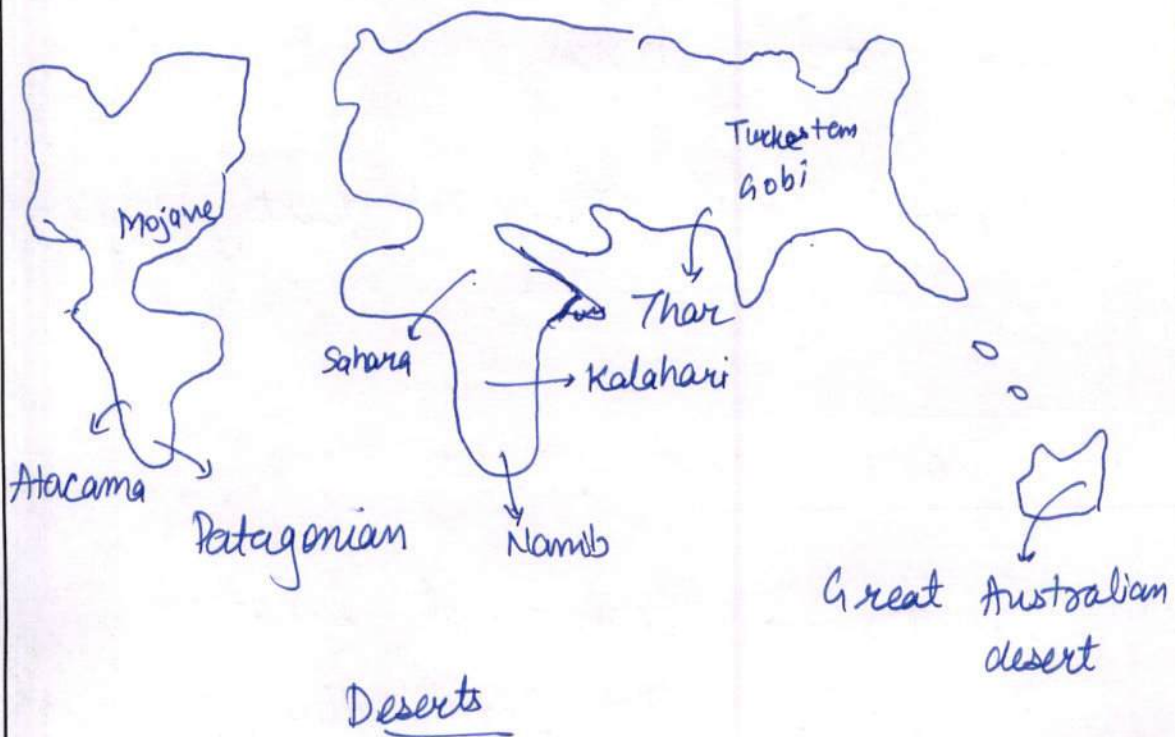 Mojave
Turkestan
Gobi
Thar
Sahara
Kalahari
Atacama
Patagonian
Namib
Great Australian
desert
Deserts